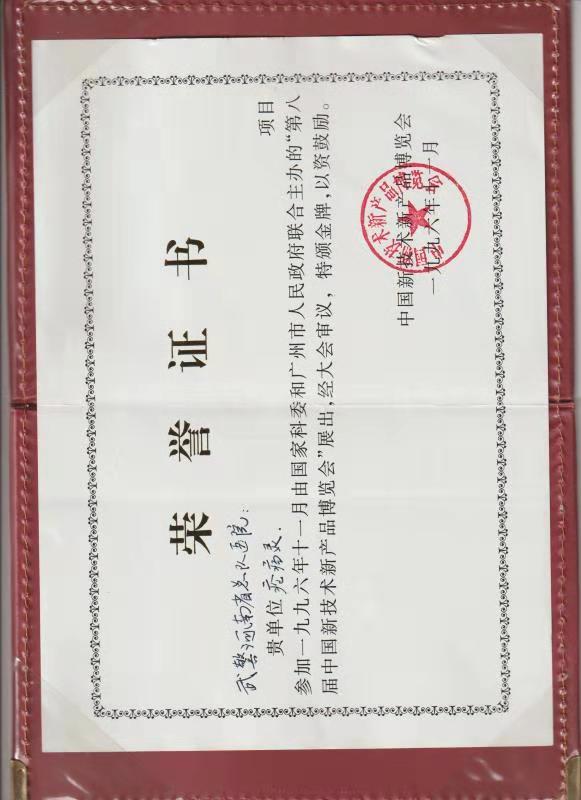 荣誉证书
武警河南省总队医院：
贵单位 疣病灵 项目
参加一九九六年十一月由国家科委和广州市人民政府联合主办的“第八
届中国新技术新产品博览会”展出，经大会审议，特颁金牌，以资鼓励。
中国新技术新产品博览会
一九九六年十一月